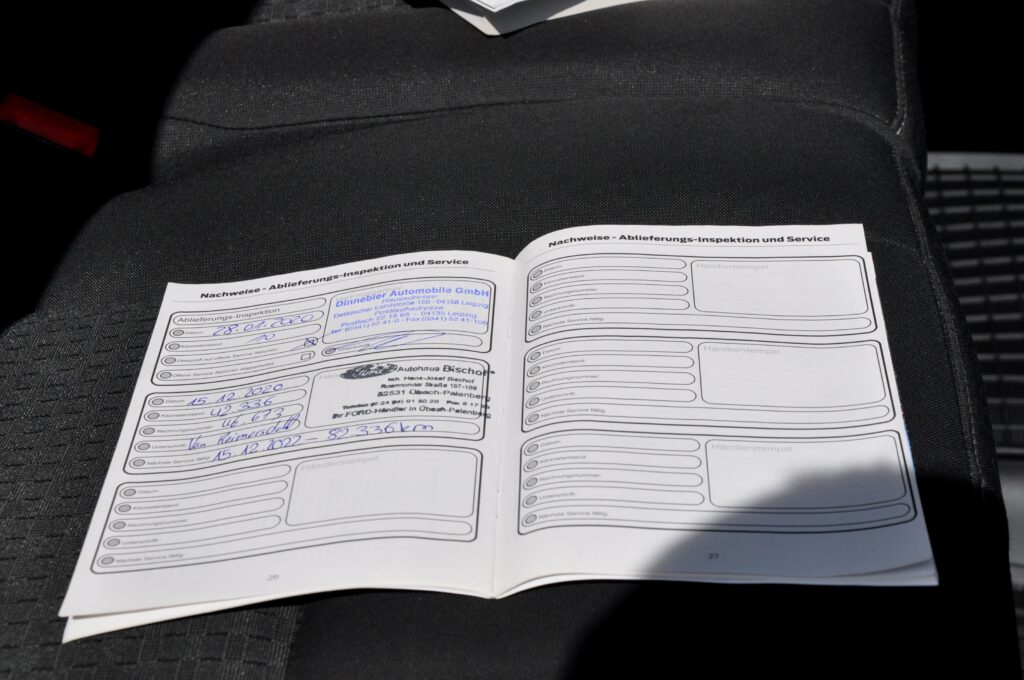 Nachweise - Ablieferungs-Inspektion und Service
Ablieferungs-Inspektion
Datum: 28.01.2020
Kilometerstand: 20
Offene Service Aktionen abgearbeitet
Dinnebier Automobile GmbH
Hausadresse:
Delitzscher Landstraße 150 · 04158 Leipzig
Postfachadresse
Postfach 22 15 65 · 04135 Leipzig
Tel. (0341) 52 41-0 · Fax (0341) 52 41-109
Datum: 15.12.2020
Kilometerstand: 42.336
Rechnungsnummer: 46.673
Unterschrift:
Nächste Service fällig: 15.12.2022 - 82.336km
Ford Autohaus Bischof
Inh. Hans-Josef Bischof
Roermonder Straße 187-189
52531 Übach-Palenberg
Ihr FORD-Händler in Übach-Palenberg
Händlerstempel
Datum:
Kilometerstand:
Rechnungsnummer:
Unterschrift:
Nächste Service fällig:
26
Nachweise - Ablieferungs-Inspektion und Service
Händlerstempel
Datum:
Kilometerstand:
Rechnungsnummer:
Unterschrift:
Nächste Service fällig:
Händlerstempel
Datum:
Kilometerstand:
Rechnungsnummer:
Unterschrift:
Nächste Service fällig:
Händlerstempel
Datum:
Kilometerstand:
Rechnungsnummer:
Unterschrift:
Nächste Service fällig:
27